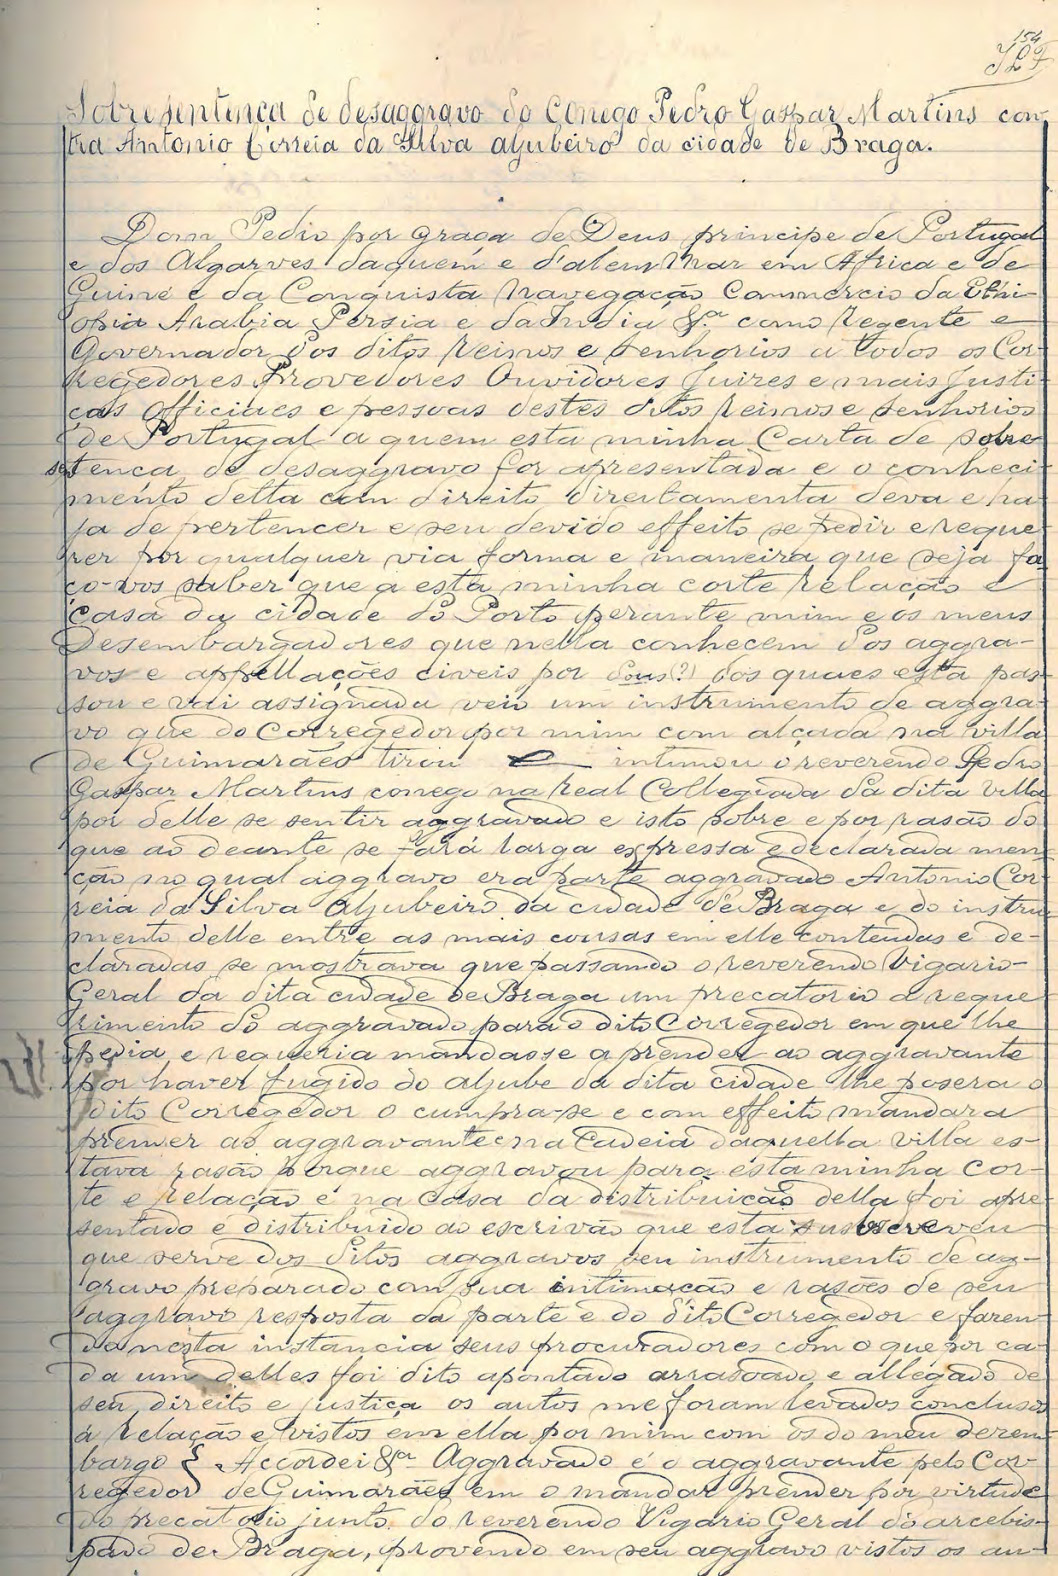 154
Sobresentença de desaggravo do Conego Pedro Gaspar Martins con-
tra Antonio Correia da Silva aljubeiro da cidade de Braga.
Dom Pedro por graça de Deus principe de Portugal
e dos Algarves daquem e d'alem Mar em Africa e de
Guiné e da Conquista Navegação Commercio da Ethi-
opia Arabia Persia e da India &.ª como Regente e
Governador dos ditos Reinos e senhorios a todos os Cor-
regedores Provedores Ouvidores Juizes e mais Justi-
ças officiaes e pessoas destes ditos Reinos e senhorios
de Portugal a quem esta minha Carta de sobre-
sentença de desaggravo for apresentada e o conheci-
mento della com direito directamenta deva e ha-
ja de pertencer e seu devido effeito se pedir e reque-
rer por qualquer via forma e maneira que seja fa-
ço-vos saber que a esta minha corte relação e
casa da cidade do Porto perante mim e os meus
Desembargadores que nella conhecem dos aggra-
vos e appellações civeis por Sous(?) dos quaes esta pas-
sou e vai assignada veio um instrumento de aggra-
vo que do Corregedor por mim com alçada na villa
de Guimarães tirou e intimou o reverendo Pedro
Gaspar Martins conego na Real Collegiada da dita villa
por delle se sentir aggravado e isto sobre e por rasão do
que ao deante se fará larga expressa e declarada men-
ção no qual aggravo era parte aggravado Antonio Cor-
reia da Silva Aljubeiro da cidade de Braga e do instru-
mento delle entre as mais cousas em elle contendas e de-
claradas se mostrava que passando o reverendo Vigario-
Geral da dita cidade de Braga um precatorio a reque-
rimento do aggravado para o dito Corregedor em que lhe
pedia e requeria mandasse a prender ao aggravante
por haver fugido do aljube da dita cidade lhe posera o
dito Corregedor o cumpra-se e com effeito mandara
prender ao aggravante e na Cadeia daquella villa es-
tava rasão porque aggravou para esta minha Cor-
te e relação e na Casa da distribuição della foi apre-
sentado e distribuido ao escrivão que esta subscreveu
que serve dos ditos aggravos seu instrumento de ag-
gravo preparado com sua intimação e rasões de seu
aggravo resposta da parte e do dito Corregedor e fazen-
do nesta instancia seus procuradores com o que por ca-
da um delles foi dito apontado arrasoado e allegado de
seu direito e justiça os autos me foram levados conclusos
á relação e vistos em ella por mim com os do meu dezem-
bargo { Accordei &.ª Aggravado é o aggravante pelo Cor-
regedor de Guimarães em o mandar prender por virtude
do precatorio junto do reverendo Vigario Geral do arcebis-
pado de Braga, provendo em seu aggravo vistos os au-